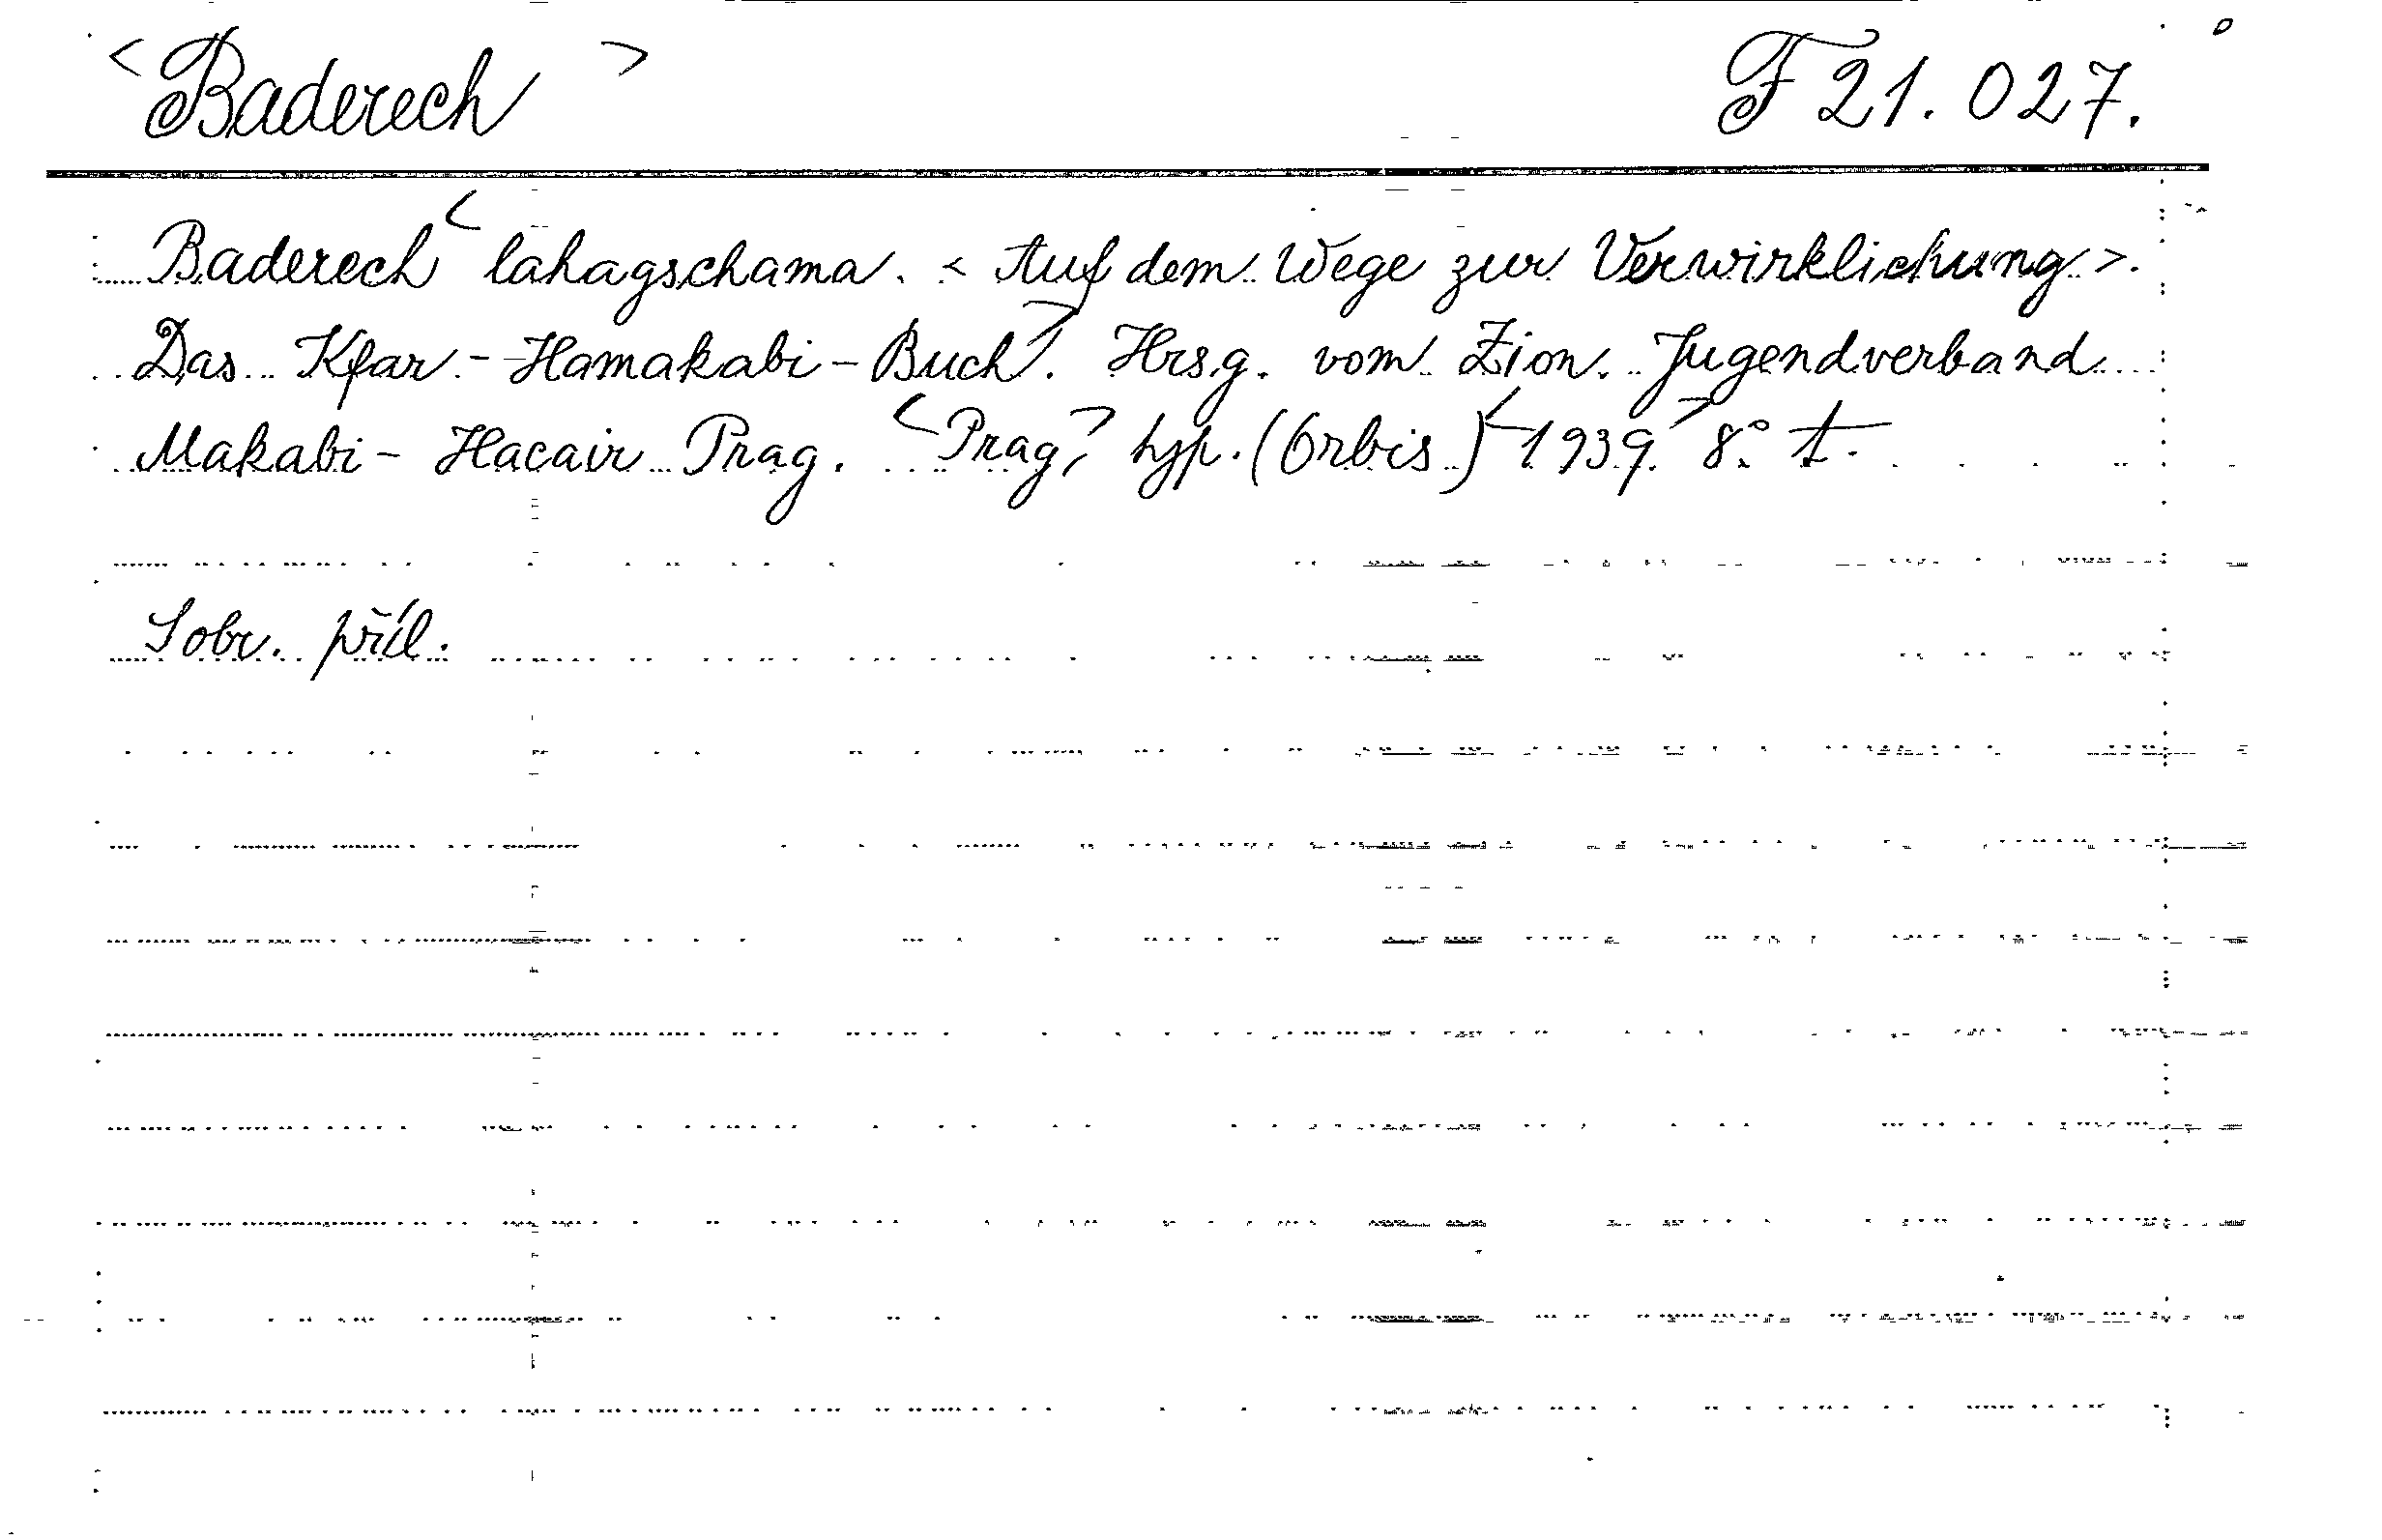 <Baderech> F 21.027.
Baderech <lahagschama. < Auf dem Wege zur Verwirklichung >.
Das Kfar-Hamakabi-Buch>. Hrsg. vom Zion. Jugendverband
Makabi-Hacair Prag. <Prag,> typ. (Orbis) <1939.> 8° t.
Sobr. příl.